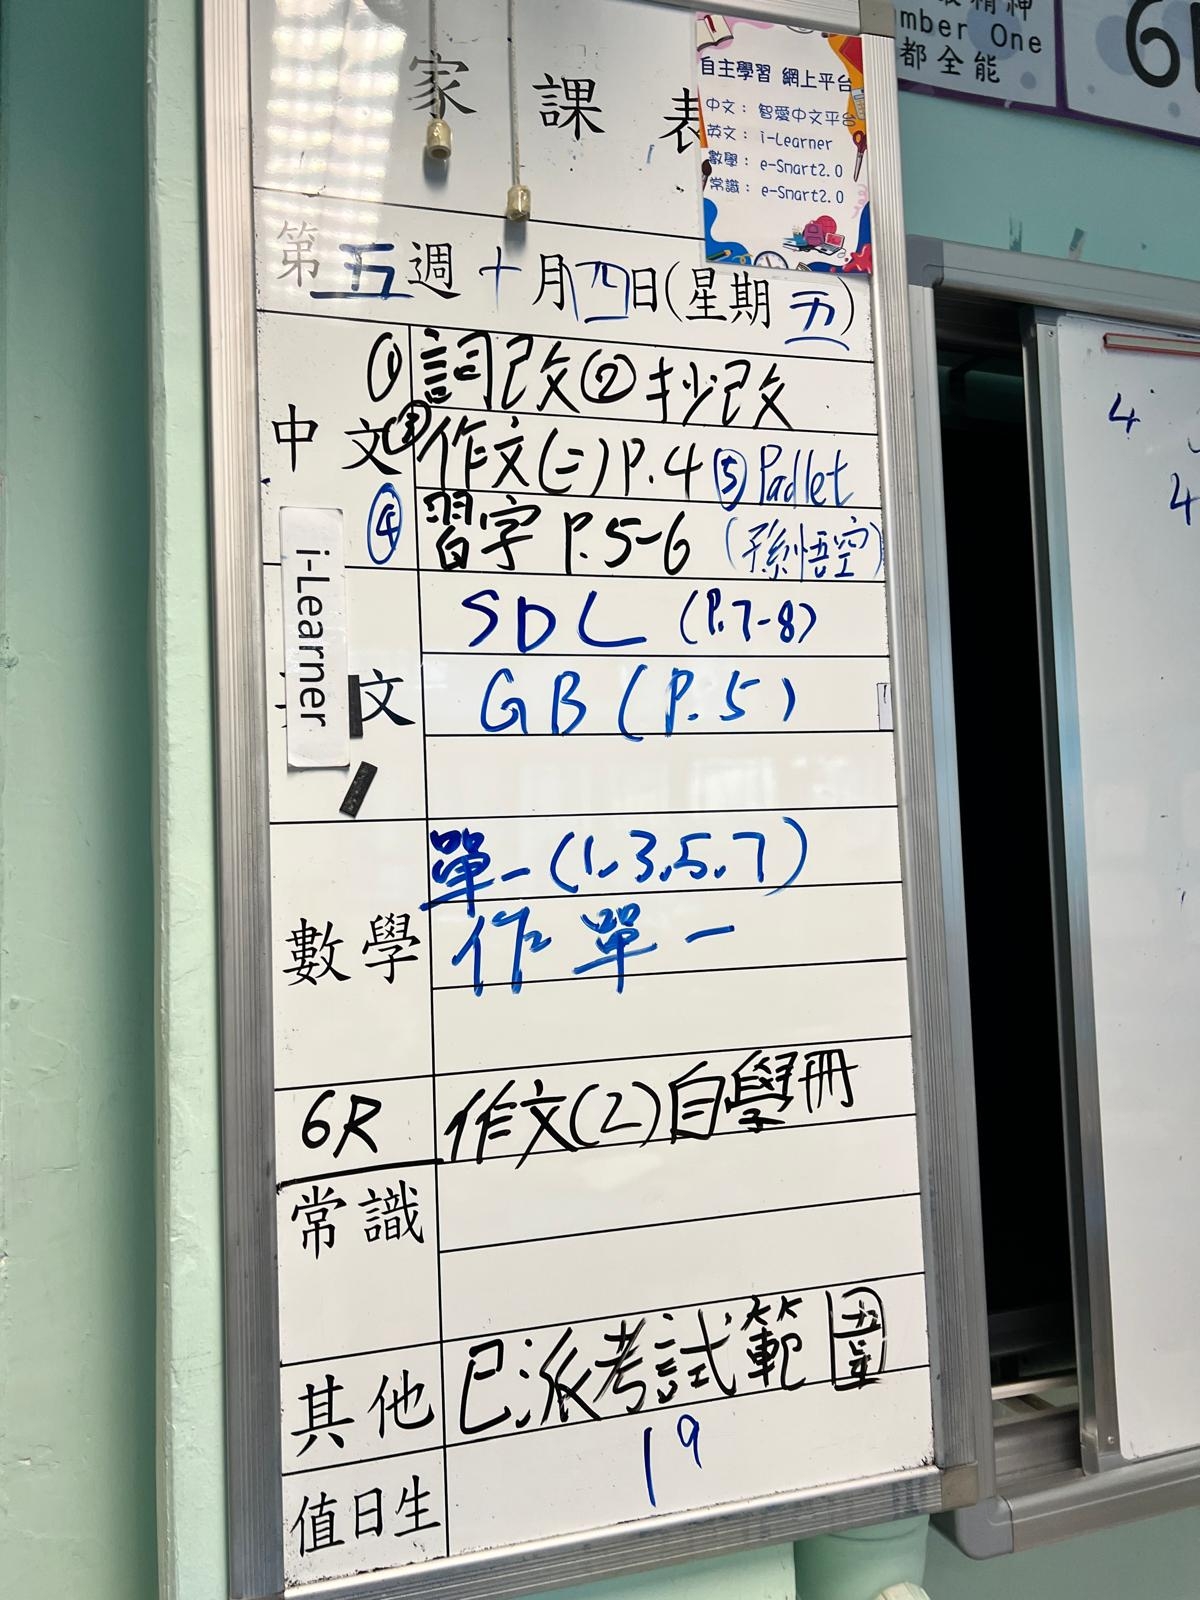 家課表
自主學習 網上平台
中文： 智愛中文平台
英文： i-Learner
數學： e-Smart2.0
常識： e-Smart2.0
精神
mber One
都全能
6
第五週十月四日(星期五)
中文
①詞改②抄改
③作文(二)P.4 ⑤Padlet
④習字 P.5-6 (孫悟空)
i-Learner
文
SDL (P.7-8)
GB (P.5)
數學
單一(1,3,5,7)
作 單一
6R 作文(2)自學冊
常識
其他 已派考試範圍
值日生 19
4
4